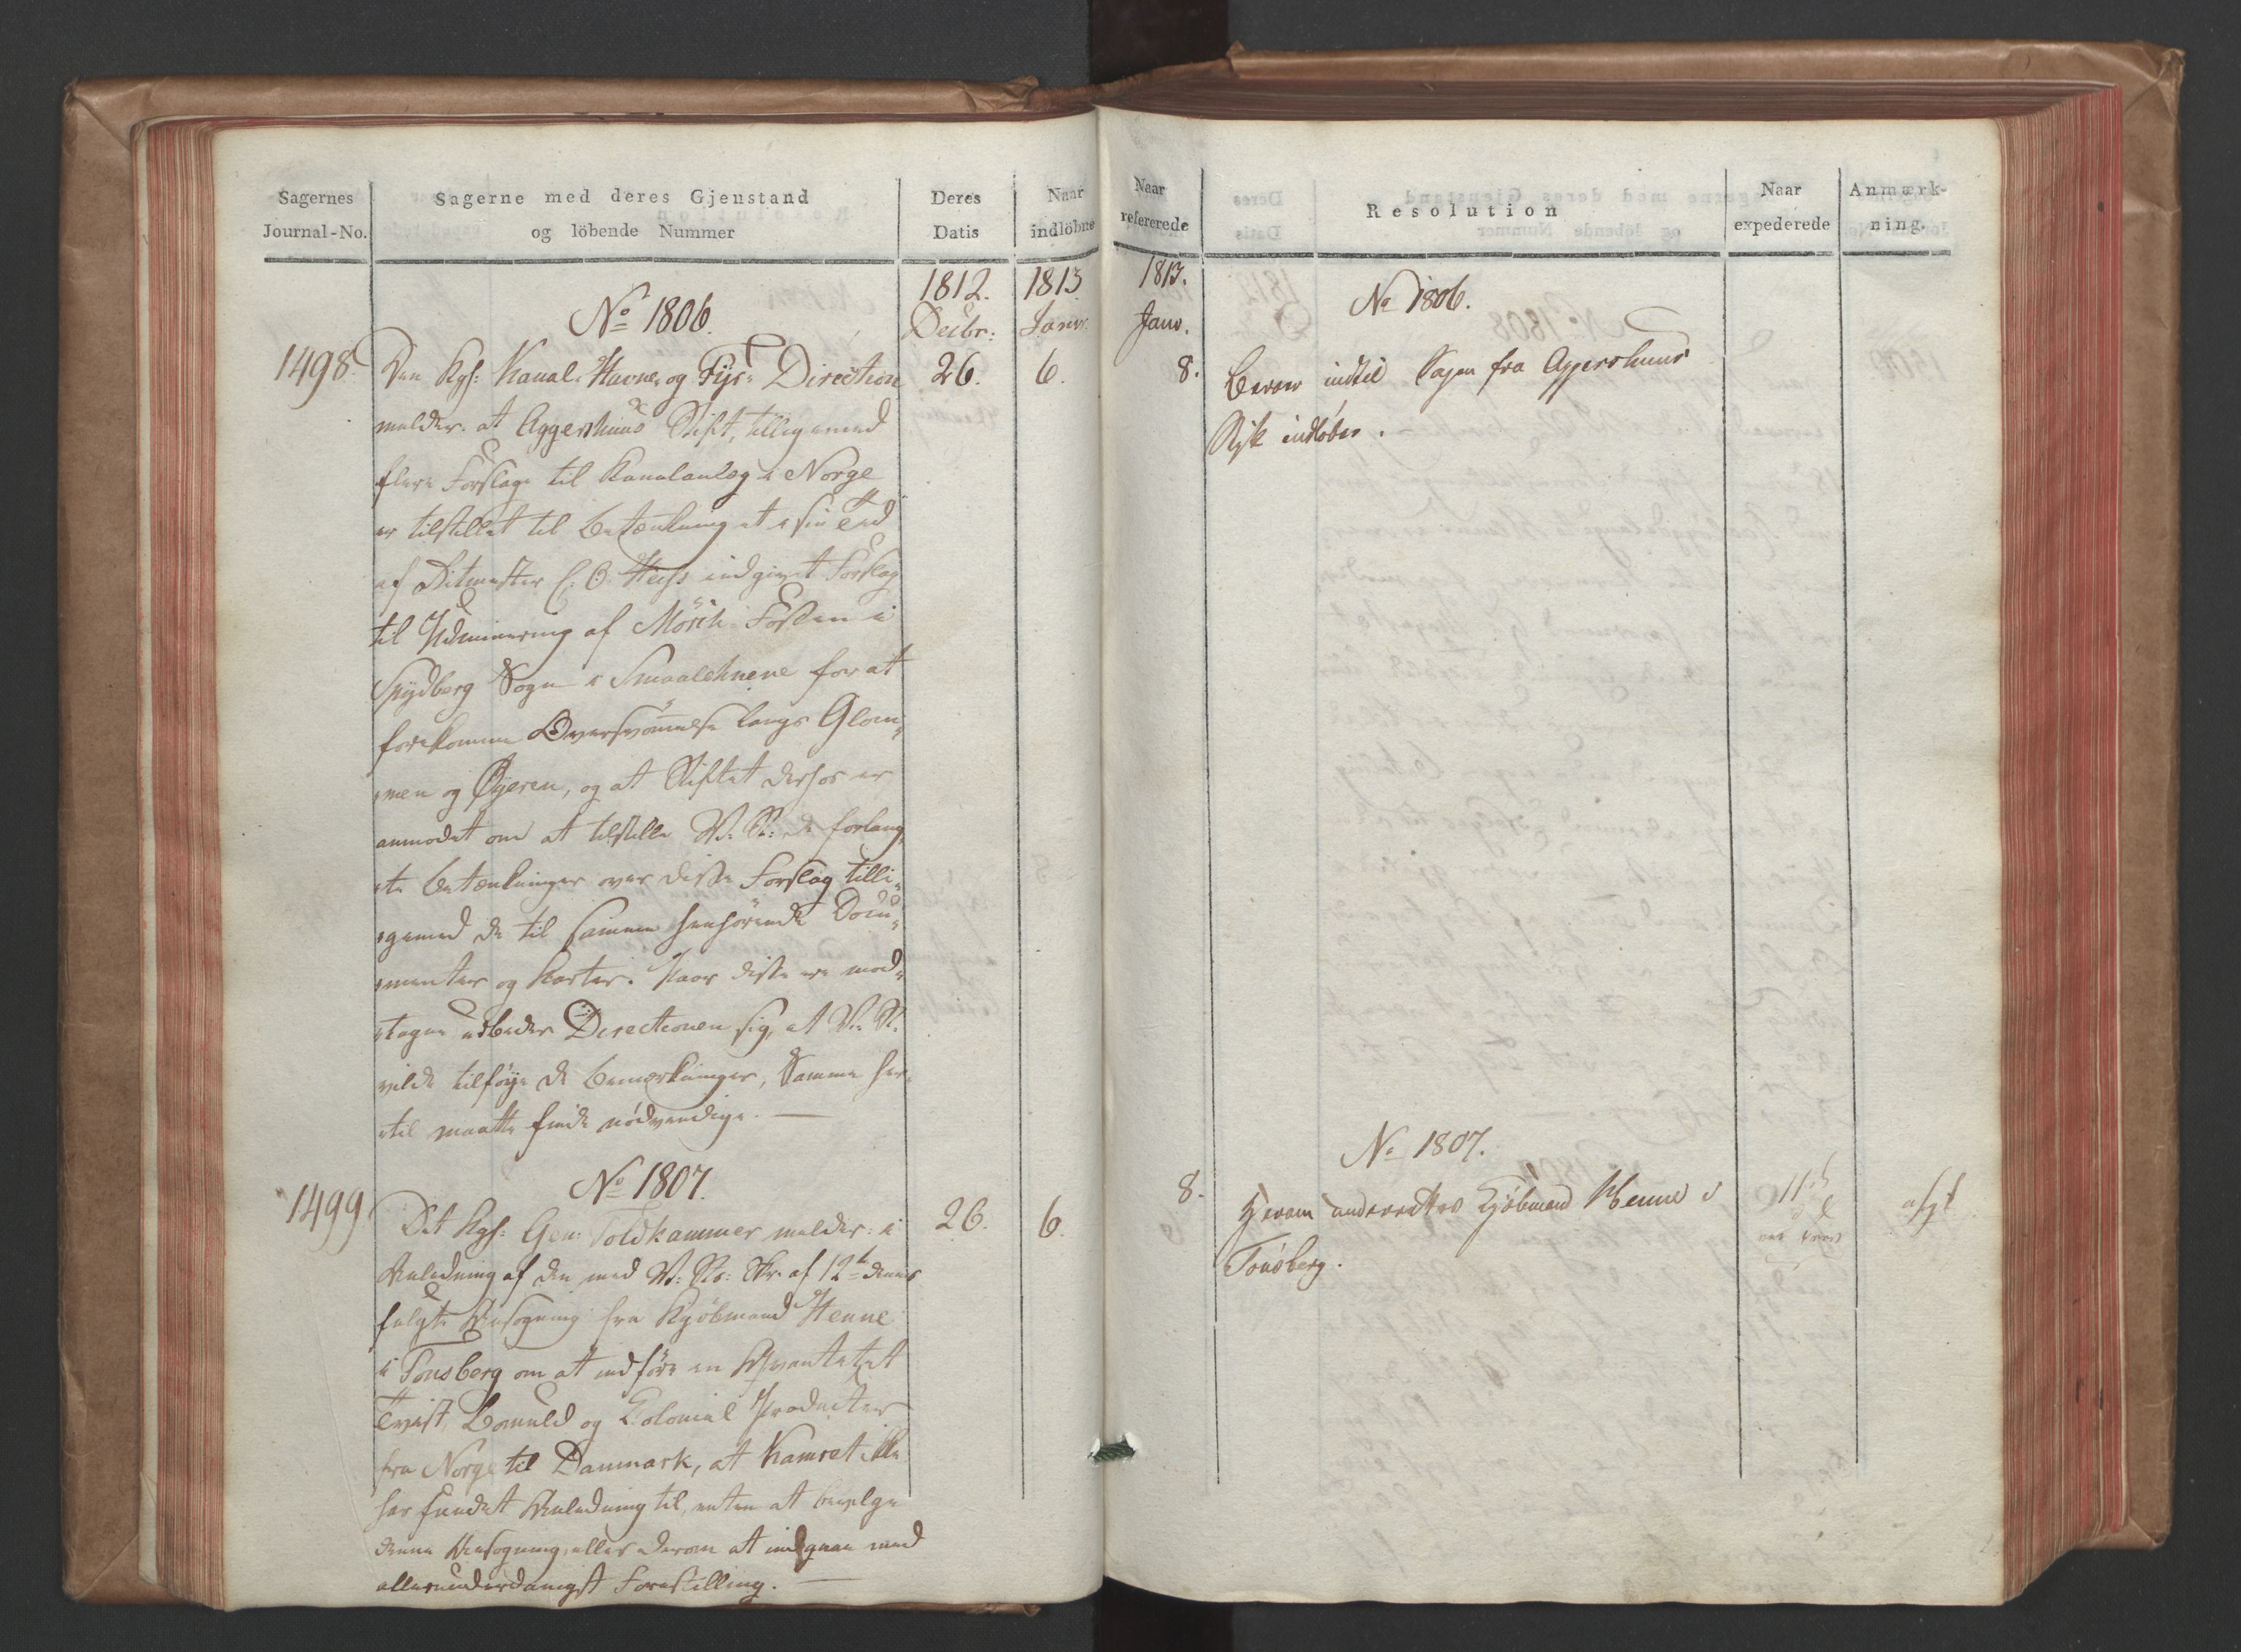 Sagernes
Journal-No.
Sagerne med deres Gjenstand
og löbende Nummer
Deres
Datis
Naar
indlöbne
1812.
Decbr:
1813
Janv:
No 1806.
1498
Den Kgl: Kanal- Havne- og Fyr- Direction
26.
6.
melder: at Aggershuus Stift, tilligemed
flere Forslage til Kanalanlæg i Norge
er tilstillet til Betænkning et i sin Tid
af Ritmester C: O: indgivet Forslag
til Udminering af Mörch Fossen i
Spydberg Sogn i Smaalehnene for at
forekomme Oversvömmelse langs Glom-
men og Øyeren, og at Stiftet derhos er
anmodet om at tilstille V: R: de forlang-
te Betænkninger over disse Forslag tilli-
gemed de til samme henhörende Docu-
menter og Karter. Naar disse ere mod-
tagne udbeder Directionen sig, at V: R:
vilde tilföye de Bemærkninger, Samme her-
til maatte finde nödvendige. —
No 1807.
1499
Det Kgl: Gen: Toldkammer melder: i
26.
6.
Anledning af den med V: Rs: Skr. af 12te dennes
fulgte Ansøgning fra Kjöbmand Henne
i Tonsberg om at indföre en Qvantitet
Twist, Bomuld og Colonial Producter
fra Norge til Danmark, at Kamret ikke
har fundet Anledning til, enten at bevilge
denne Ansøgning, eller derom at indgaae med
allerunderdanigst Forestilling. —
Naar
refererede
Resolution
Naar
expederede
Anmærk-
ning.
1813.
Janv.
No 1806.
8.
Beroer indtil Sagen fra Aggershuus
Stift indløber.
No 1807.
8.
Herom underrettes Kjöbmand Henne i
Tönsberg.
11te
afgl